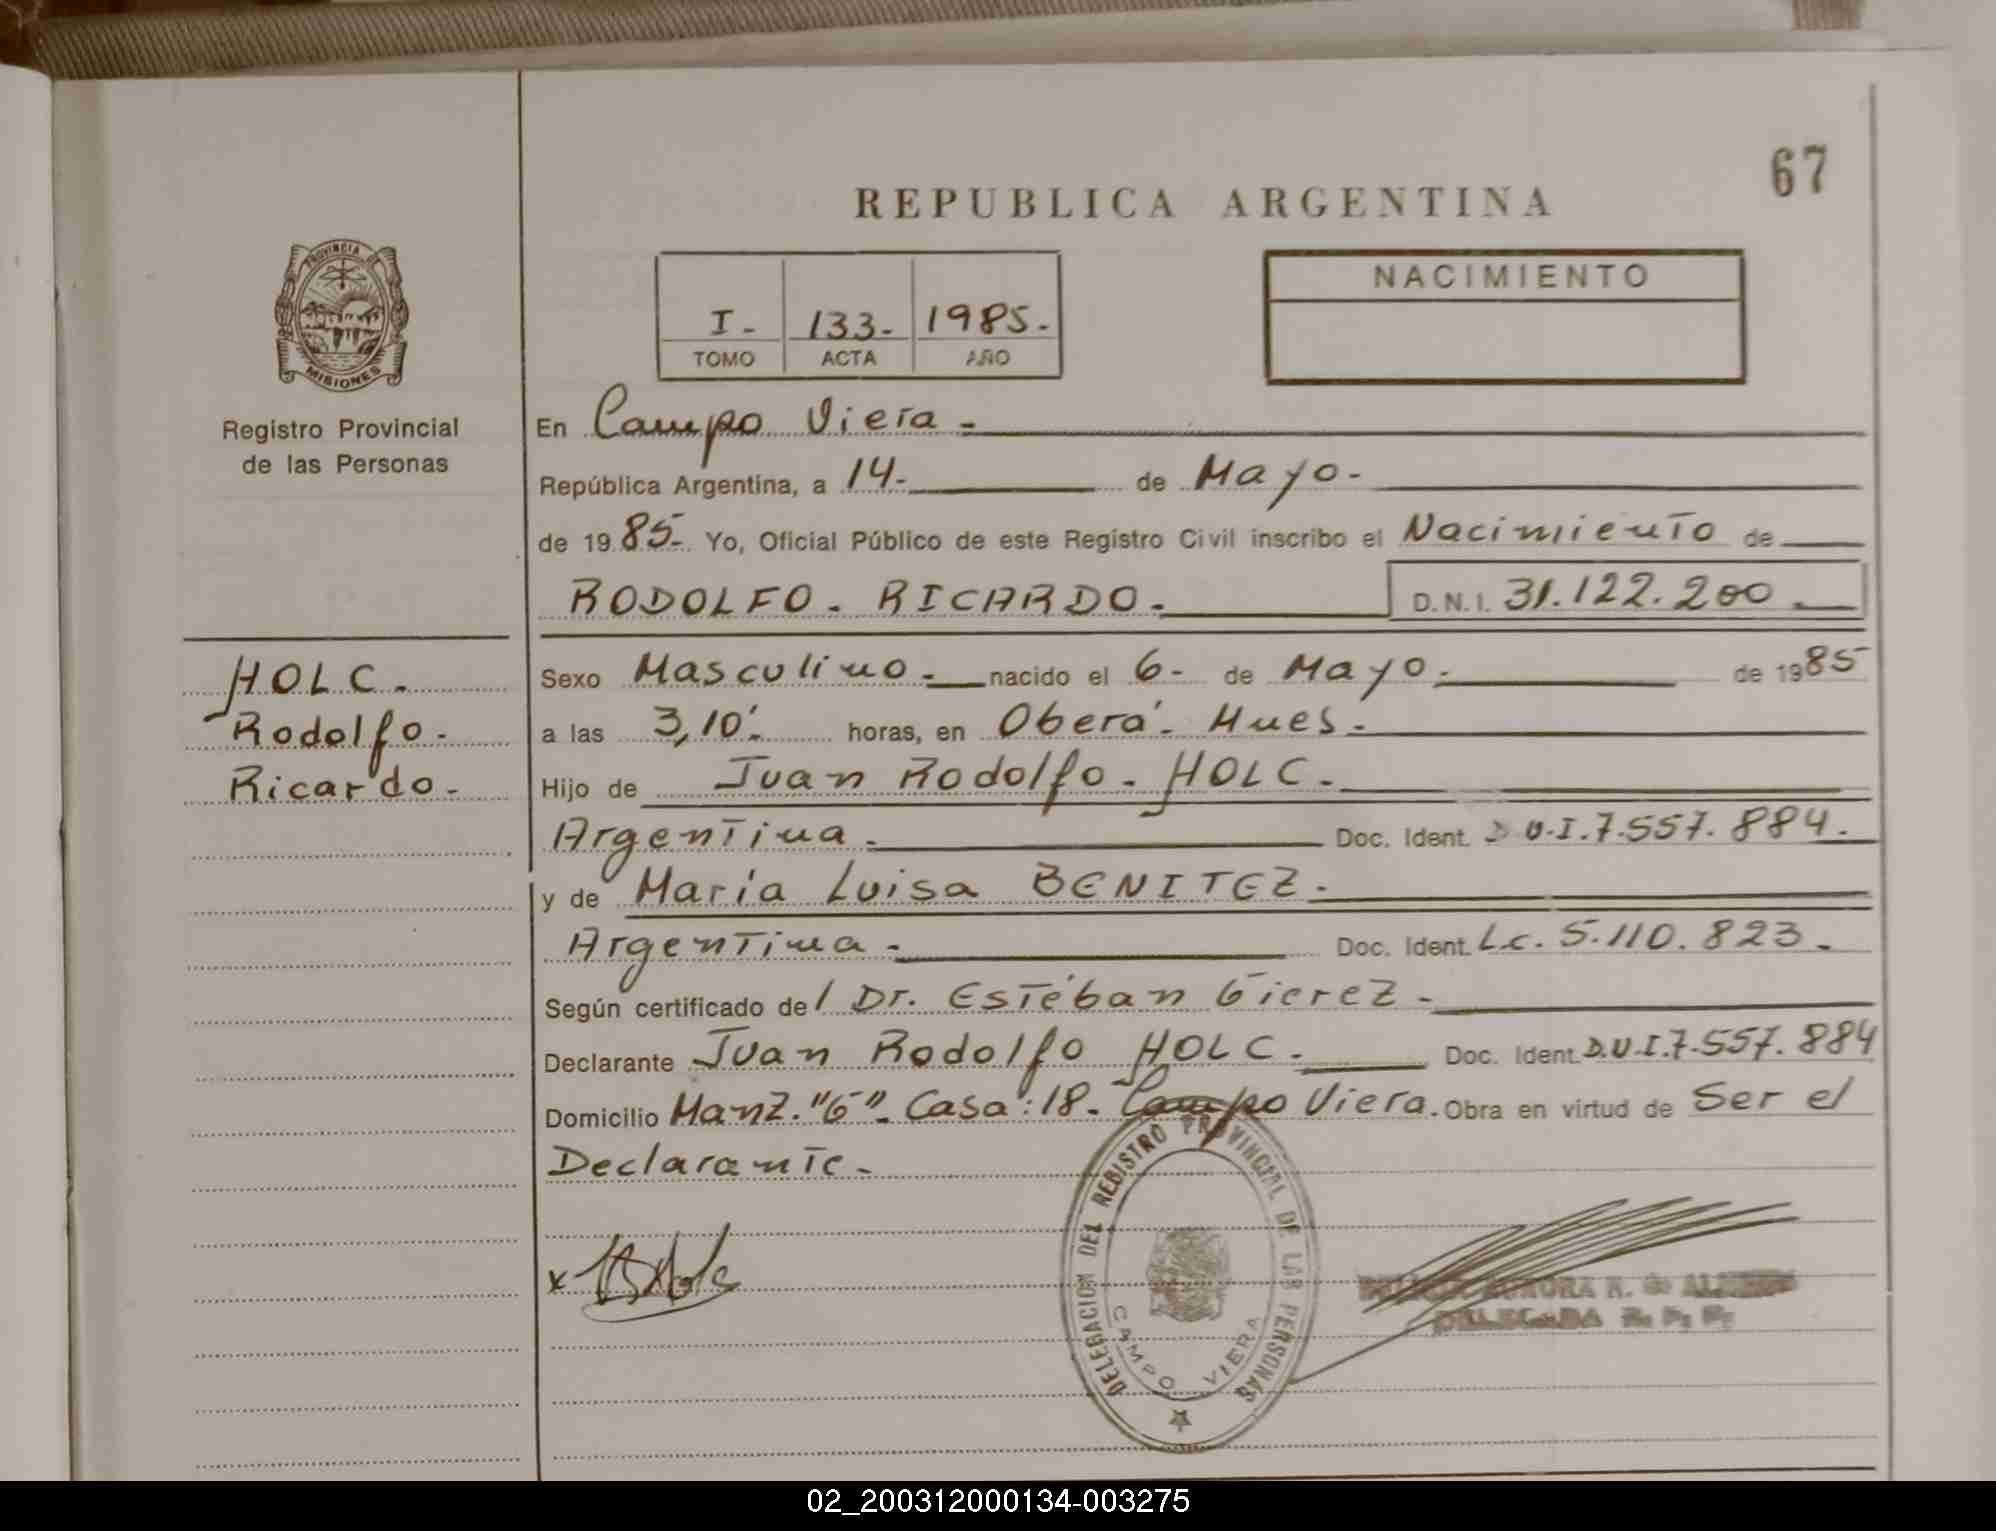 67
REPUBLICA ARGENTINA
PROVINCIA DE
MISIONES
Registro Provincial
de las Personas
I- 133- 1985-
TOMO ACTA AÑO
NACIMIENTO
En Campo Viera -
República Argentina, a 14- de Mayo-
de 1985- Yo, Oficial Público de este Registro Civil inscribo el Nacimiento de
RODOLFO- RICARDO- D.N.I. 31.122.200
HOLC-
Rodolfo-
Ricardo-
Sexo Masculino- nacido el 6- de Mayo- de 1985
a las 3,10'- horas, en Oberá- Mnes-
Hijo de Juan Rodolfo- HOLC-
Argentina- Doc. Ident. D.U.I. 7.557.884-
y de María Luisa BENITEZ-
Argentina- Doc. Ident. L.c. 5.110.823-
Según certificado de/ Dr. Estéban Gierez-
Declarante Juan Rodolfo HOLC- Doc. Ident. D.U.I. 7.557.884
Domicilio Manz."G"- Casa:18- Campo Viera. Obra en virtud de Ser el
Declarante-
DELEGACION DEL REGISTRO PROVINCIAL DE LAS PERSONAS
CAMPO VIERA
AURORA R. de
DELEGADA R. P. P.
02_200312000134-003275